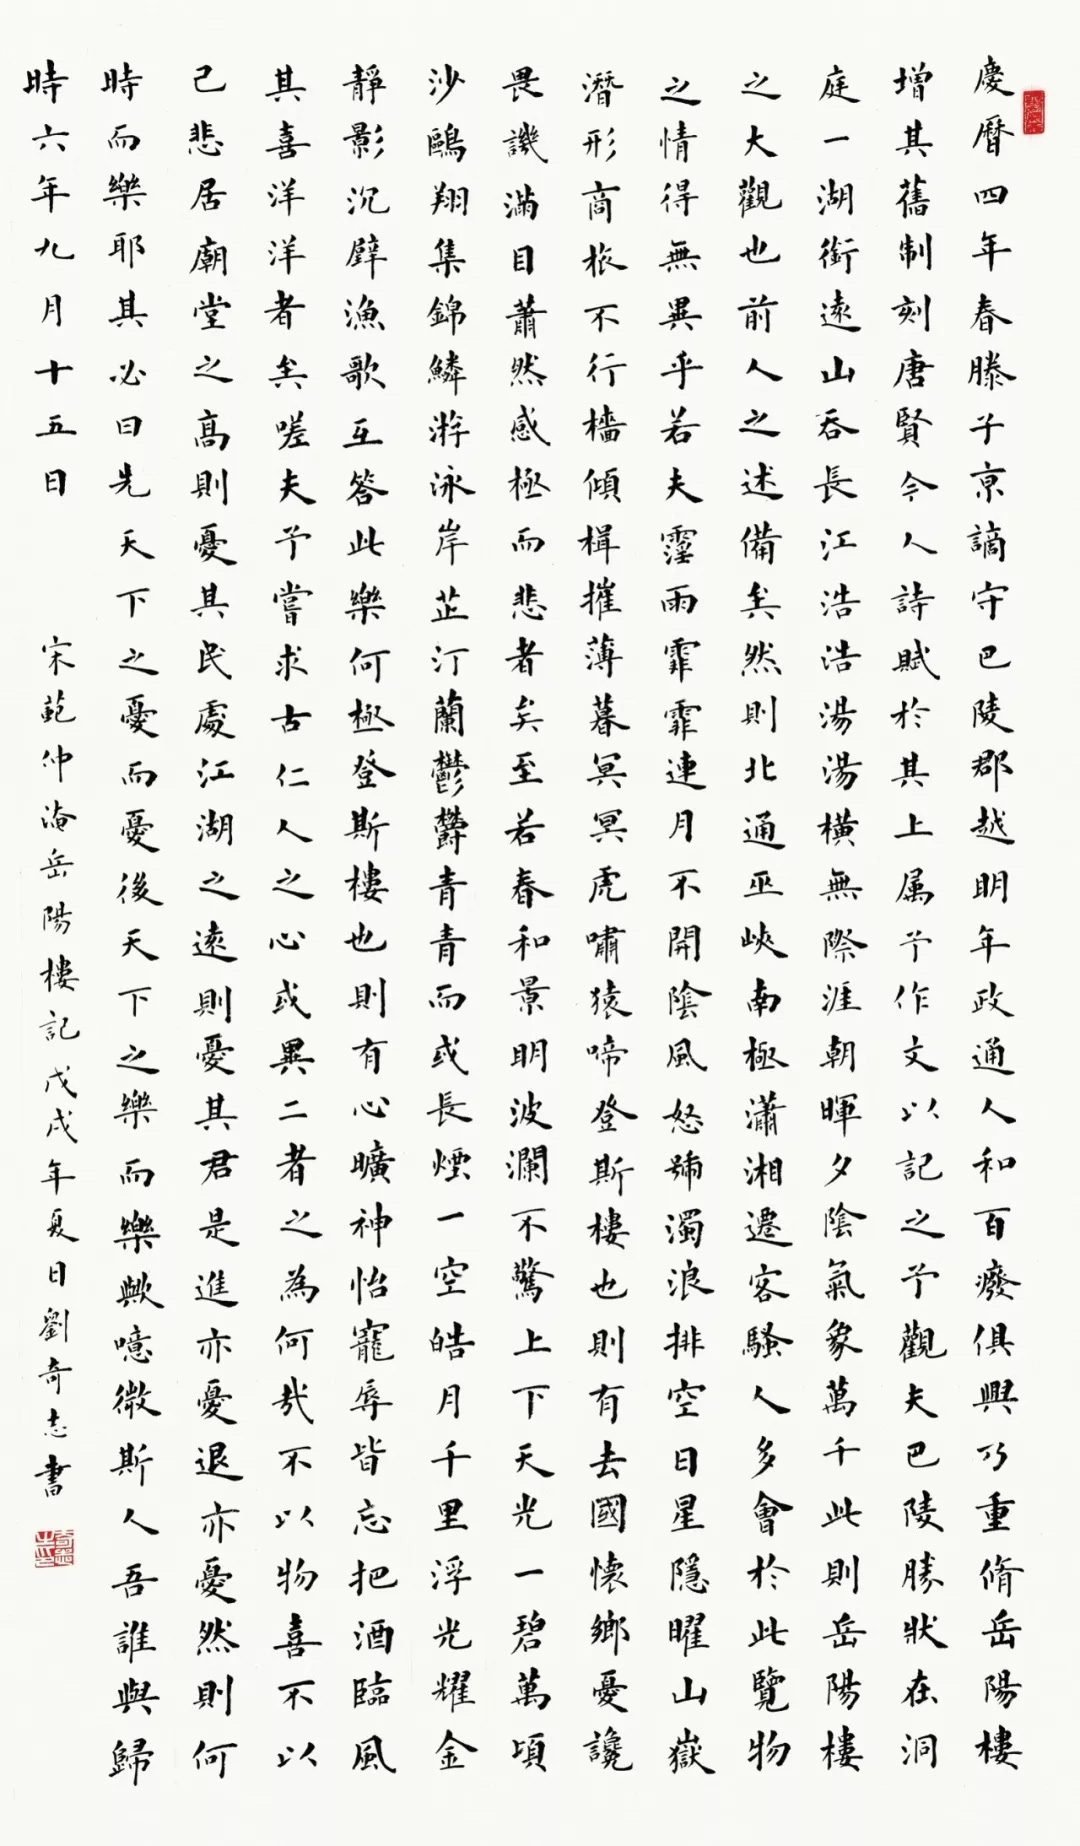 慶曆四年春滕子京謫守巴陵郡越明年政通人和百癈俱興乃重脩岳陽樓
增其舊制刻唐賢今人詩賦於其上属予作文以記之予觀夫巴陵勝狀在洞
庭一湖銜遠山吞長江浩浩湯湯橫無際涯朝暉夕陰氣象萬千此則岳陽樓
之大觀也前人之述備矣然則北通巫峽南極瀟湘遷客騷人多會於此覽物
之情得無異乎若夫霪雨霏霏連月不開陰風怒號濁浪排空日星隱曜山嶽
潛形商旅不行檣傾楫摧薄暮冥冥虎嘯猿啼登斯樓也則有去國懷鄉憂讒
畏譏滿目蕭然感極而悲者矣至若春和景明波瀾不驚上下天光一碧萬頃
沙鷗翔集錦鱗游泳岸芷汀蘭鬱鬱青青而或長煙一空皓月千里浮光耀金
靜影沉璧漁歌互答此樂何極登斯樓也則有心曠神怡寵辱皆忘把酒臨風
其喜洋洋者矣嗟夫予嘗求古仁人之心或異二者之為何哉不以物喜不以
己悲居廟堂之高則憂其民處江湖之遠則憂其君是進亦憂退亦憂然則何
時而樂耶其必曰先天下之憂而憂後天下之樂而樂歟噫微斯人吾誰與歸
時六年九月十五日
宋範仲淹岳陽樓記戊戌年夏日劉奇志書